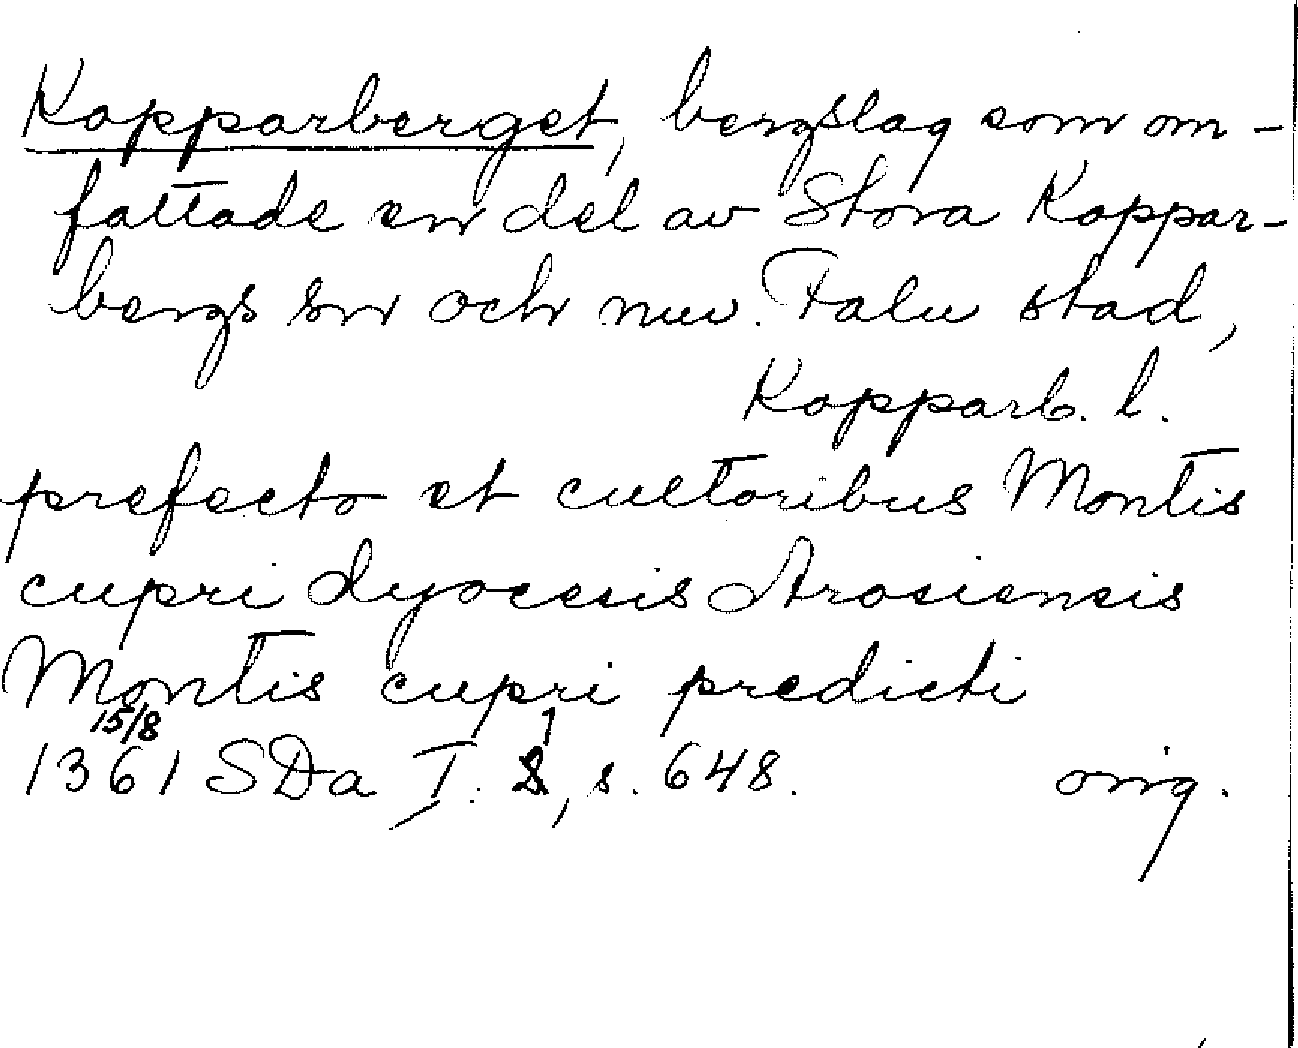 Kopparberget, bergslag som om-
fattade en del av Stora Koppar-
bergs sn och nuv. Falu stad,
Kopparb. l.
prefecto et cultoribus Montis
cupri dyocesis Arosiensis
Montis cupri predicti
15/8 1
1361 SDa I. s. 648. orig.